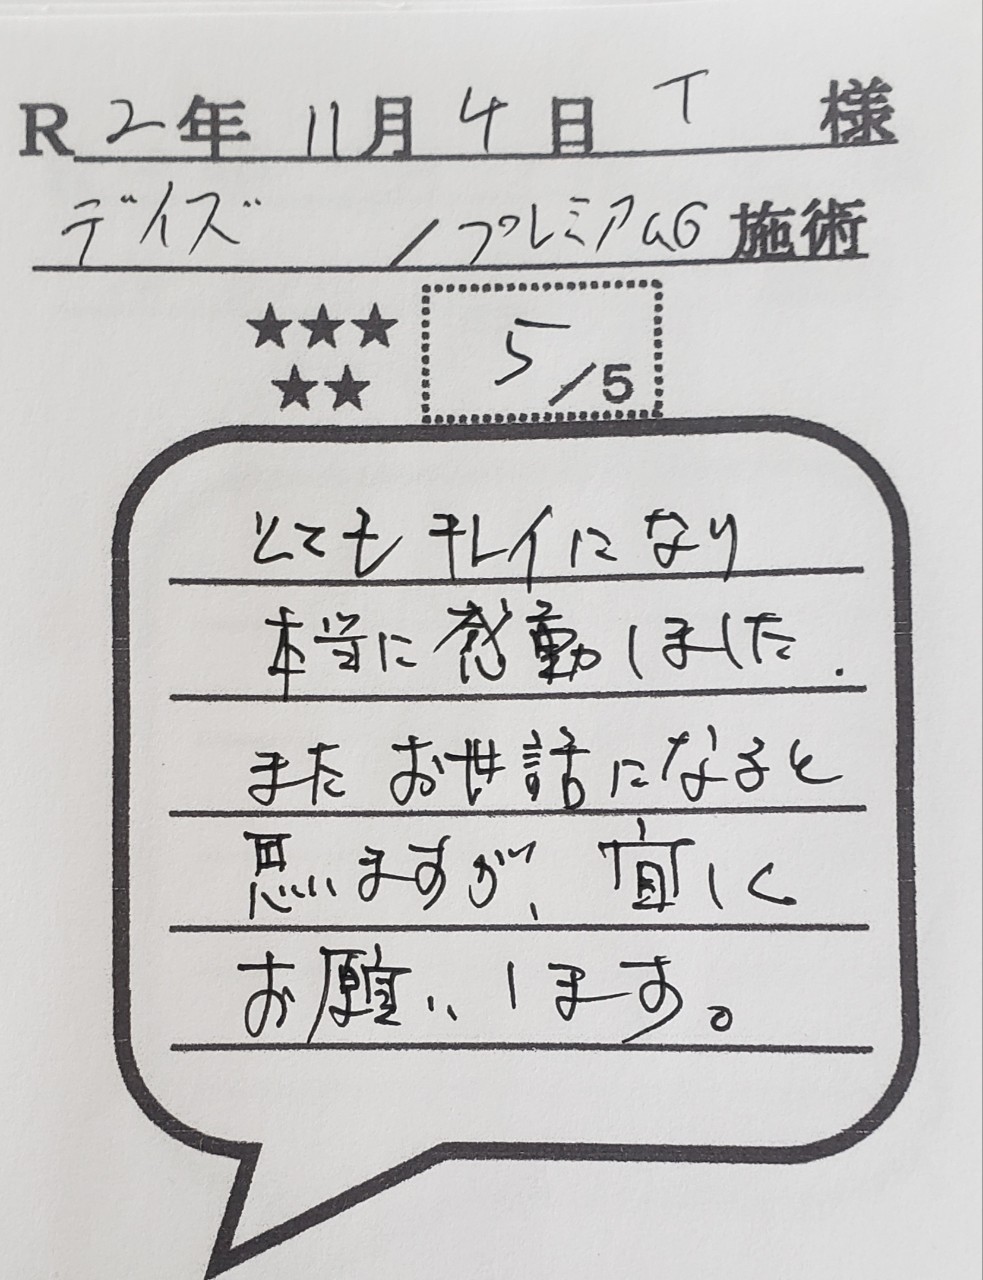 R2年11月4日 T 様
デイズ/プレミアムG施術
★★★
★★
5/5
とてもキレイになり
本当に感動しました.
またお世話になると
思いますが、宜しく
お願いします。